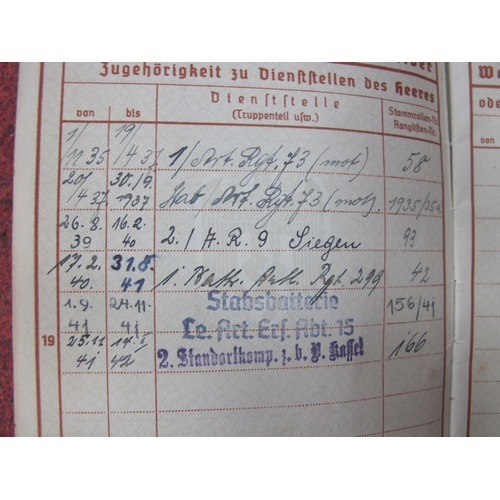 Zugehörigkeit zu Dienststellen des Heeres
von bis Dienststelle (Truppenteil usw.) Stammrollen-Nr. Ranglisten-Nr.
1/11 35 19/4 37 1/ Art. Rgt. 73 (mot) 58
20/4 37 30./9. 1937 Stab Art. Rgt. 73 (mot). 1935/35
26.8. 39 16.2. 40 2./A.R. 9 Siegen 93
17.2. 40 31.8. 41 1. Battr. Artl. Rgt. 299 42
1.9. 41 24.11. 41 Stabsbatterie Le. Art. Ers. Abt. 15 156/41
19 25.11 41 42 2. Standortkomp. z. b. V. Kassel 166